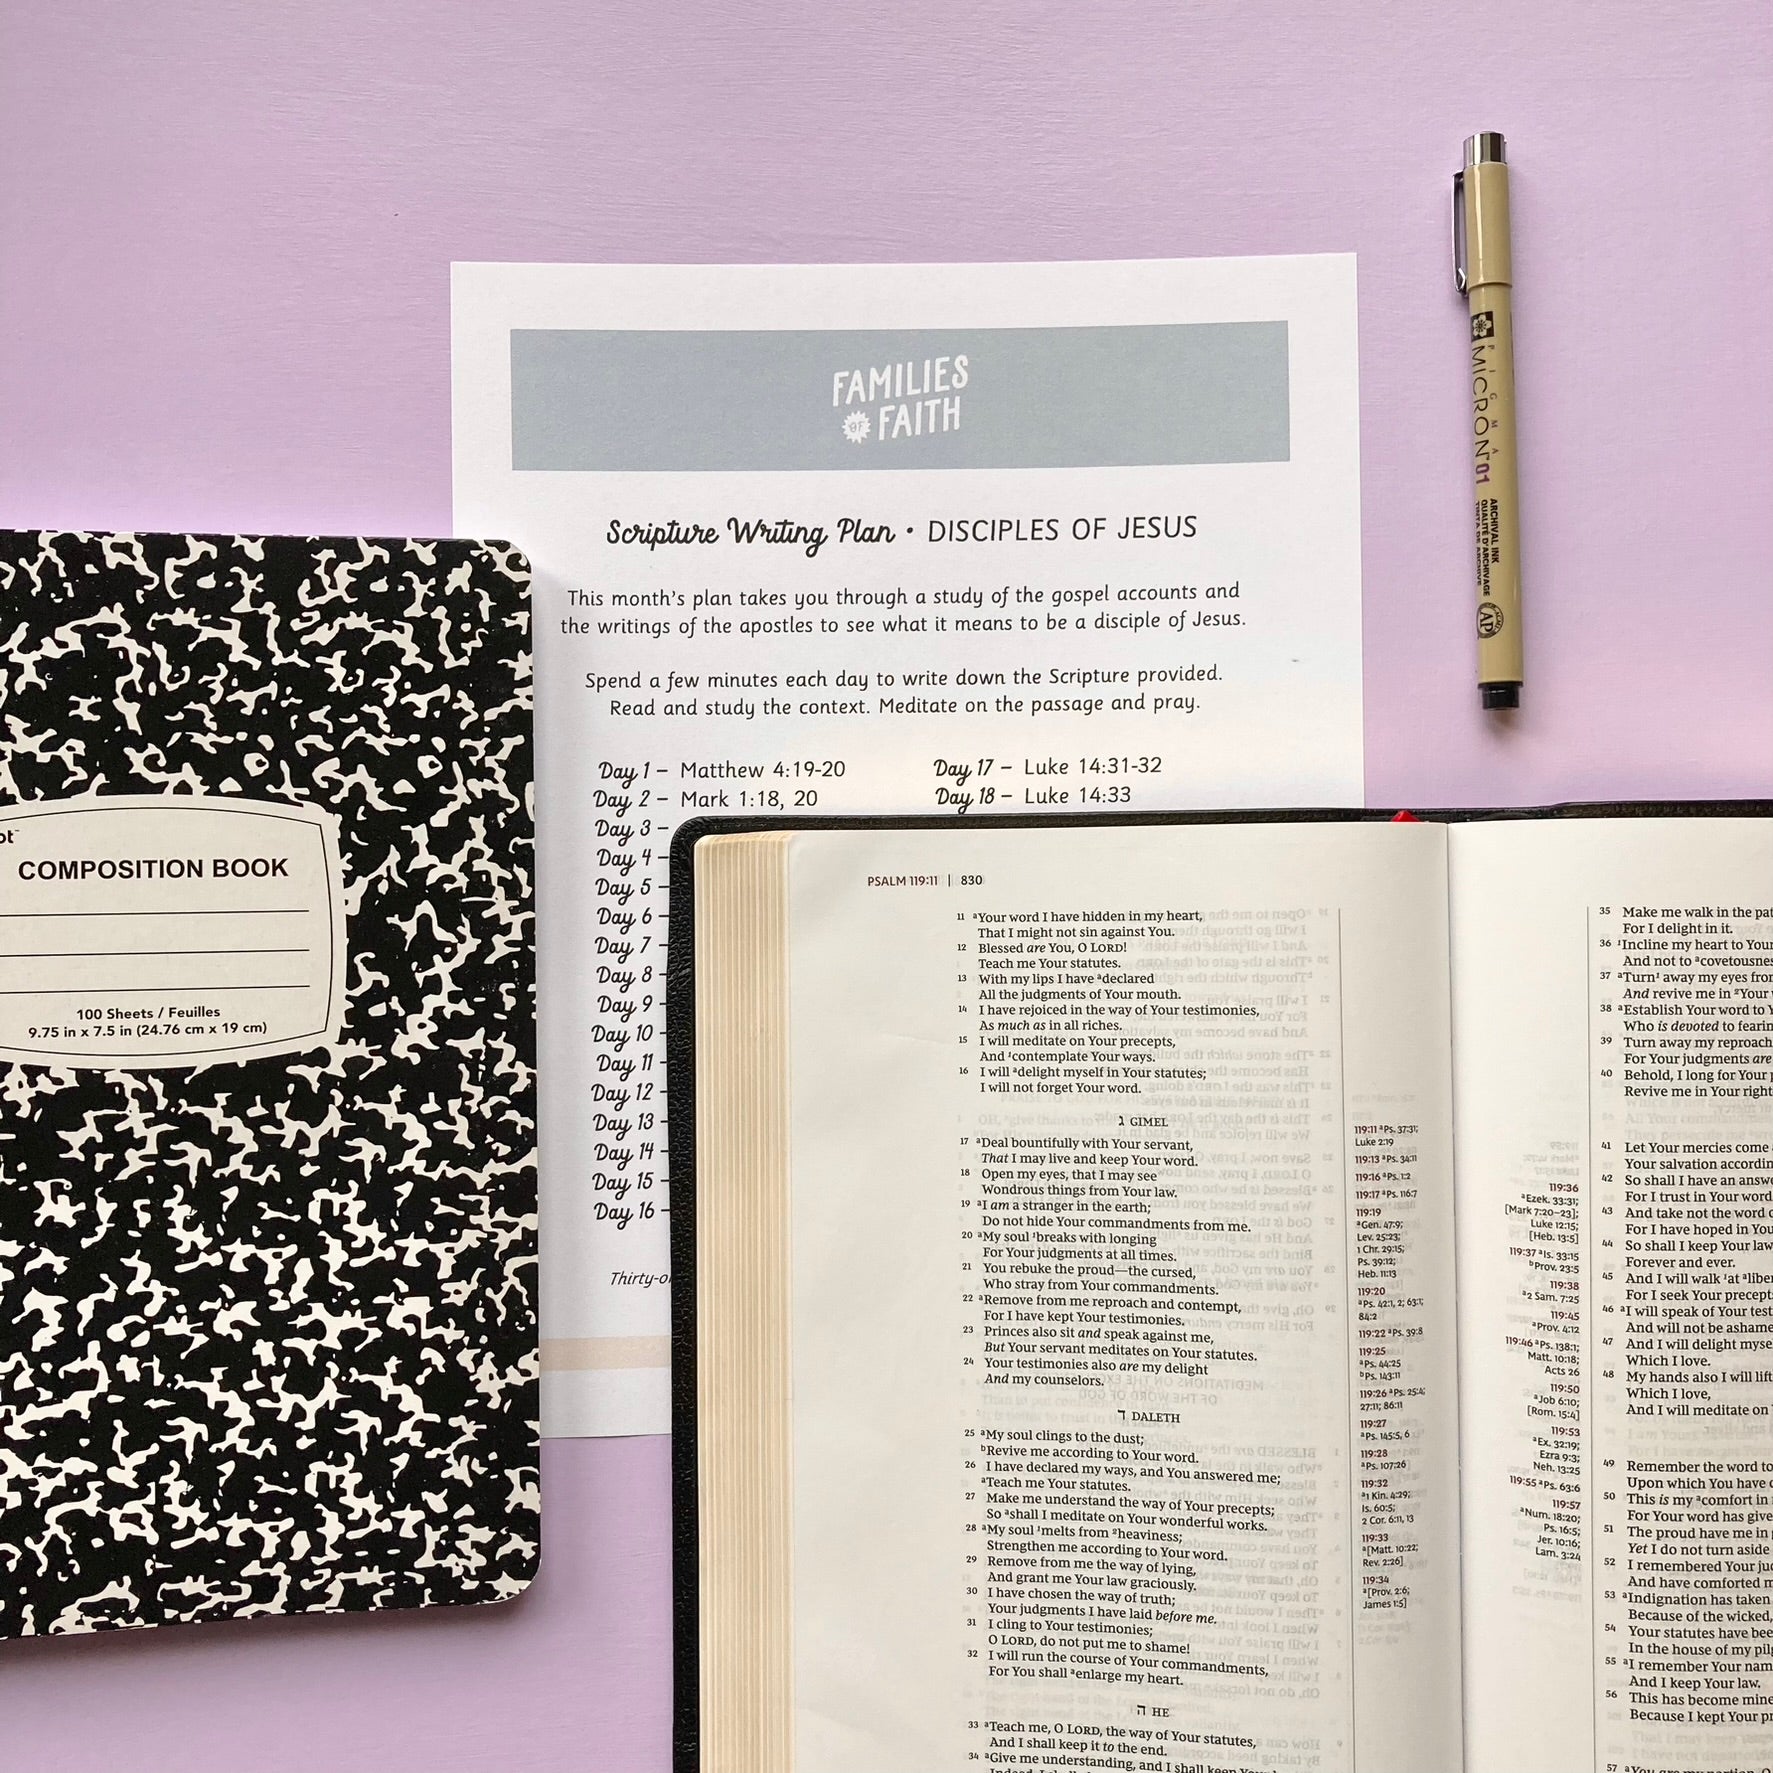 FAMILIES
OF FAITH
Scripture Writing Plan • DISCIPLES OF JESUS
This month's plan takes you through a study of the gospel accounts and
the writings of the apostles to see what it means to be a disciple of Jesus.
Spend a few minutes each day to write down the Scripture provided.
Read and study the context. Meditate on the passage and pray.
Day 1 – Matthew 4:19-20
Day 2 – Mark 1:18, 20
Day 3 –
Day 4 –
Day 5 –
Day 6 –
Day 7 –
Day 8 –
Day 9 –
Day 10 –
Day 11 –
Day 12 –
Day 13 –
Day 14 –
Day 15 –
Day 16 –
Day 17 – Luke 14:31-32
Day 18 – Luke 14:33
PIGMA
MICRON 01
ARCHIVAL INK
QUALITÉ D'ARCHIVAGE
TINTA DE ARCHIVE
AP
COMPOSITION BOOK
100 Sheets / Feuilles
9.75 in x 7.5 in (24.76 cm x 19 cm)
PSALM 119:11 | 830
11 ᵃYour word I have hidden in my heart,
That I might not sin against You.
12 Blessed are You, O LORD!
Teach me Your statutes.
13 With my lips I have ᵃdeclared
All the judgments of Your mouth.
14 I have rejoiced in the way of Your testimonies,
As much as in all riches.
15 I will meditate on Your precepts,
And ¹contemplate Your ways.
16 I will ᵃdelight myself in Your statutes;
I will not forget Your word.
ג GIMEL
17 ᵃDeal bountifully with Your servant,
That I may live and keep Your word.
18 Open my eyes, that I may see
Wondrous things from Your law.
19 ᵃI am a stranger in the earth;
Do not hide Your commandments from me.
20 ᵃMy soul ¹breaks with longing
For Your judgments at all times.
21 You rebuke the proud—the cursed,
Who stray from Your commandments.
22 ᵃRemove from me reproach and contempt,
For I have kept Your testimonies.
23 Princes also sit and speak against me,
But Your servant meditates on Your statutes.
24 Your testimonies also are my delight
And my counselors.
ד DALETH
25 ᵃMy soul clings to the dust;
ᵇRevive me according to Your word.
26 I have declared my ways, and You answered me;
ᵃTeach me Your statutes.
27 Make me understand the way of Your precepts;
So ᵃshall I meditate on Your wonderful works.
28 ᵃMy soul ¹melts from ²heaviness;
Strengthen me according to Your word.
29 Remove from me the way of lying,
And grant me Your law graciously.
30 I have chosen the way of truth;
Your judgments I have laid before me.
31 I cling to Your testimonies;
O LORD, do not put me to shame!
32 I will run the course of Your commandments,
For You shall ᵃenlarge my heart.
ה HE
33 ᵃTeach me, O LORD, the way of Your statutes,
And I shall keep it to the end.
34 ᵃGive me understanding, and I shall keep
119:11 ᵃPs. 37:31;
Luke 2:19
119:13 ᵃPs. 34:11
119:16 ᵃPs. 1:2
119:17 ᵃPs. 116:7
119:19
ᵃGen. 47:9;
Lev. 25:23;
1 Chr. 29:15;
Ps. 39:12;
Heb. 11:13
119:20
ᵃPs. 42:1, 2; 63:1;
84:2
119:22 ᵃPs. 39:8
119:25
ᵃPs. 44:25
ᵇPs. 143:11
119:26 ᵃPs. 25:4;
27:11; 86:11
119:27
ᵃPs. 145:5, 6
119:28
ᵃPs. 107:26
119:32
ᵃ1 Kin. 4:29;
Is. 60:5;
2 Cor. 6:11, 13
119:33
ᵃ[Matt. 10:22;
Rev. 2:26]
119:34
ᵃ[Prov. 2:6;
James 1:5]
119:36
ᵃEzek. 33:31;
[Mark 7:20–23];
Luke 12:15;
[Heb. 13:5]
119:37 ᵃIs. 33:15
ᵇProv. 23:5
119:38
ᵃ2 Sam. 7:25
119:45
ᵃProv. 4:12
119:46 ᵃPs. 138:1;
Matt. 10:18;
Acts 26
119:50
ᵃJob 6:10;
[Rom. 15:4]
119:53
ᵃEx. 32:19;
Ezra 9:3;
Neh. 13:25
119:55 ᵃPs. 63:6
119:57
ᵃNum. 18:20;
Ps. 16:5;
Jer. 10:16;
Lam. 3:24
35 Make me walk in the
For I delight in it.
36 ¹Incline my heart to Your
And not to ᵃcovetousnes
37 ᵃTurn¹ away my eyes
And revive me in ²Your
38 ᵃEstablish Your word to
Who is devoted to
39 Turn away my reproach
For Your judgments are
40 Behold, I long for Your
Revive me in Your
41 Let Your mercies come
Your salvation
42 So shall I have an
For I trust in Your word
43 And take not the word
For I have hoped in
44 So shall I keep Your law
Forever and ever.
45 And I will walk ¹at
For I seek Your
46 ᵃI will speak of Your
And will not be
47 And I will delight
Which I love.
48 My hands also I will lift
Which I love,
And I will meditate on
49 Remember the word to
Upon which You have
50 This is my ᵃcomfort in
For Your word has
51 The proud have me in
Yet I do not turn aside
52 I remembered Your
And have comforted
53 ᵃIndignation has taken
Because of the wicked,
54 Your statutes have
In the house of my
55 ᵃI remember Your
And I keep Your law.
56 This has become mine
Because I kept Your
57